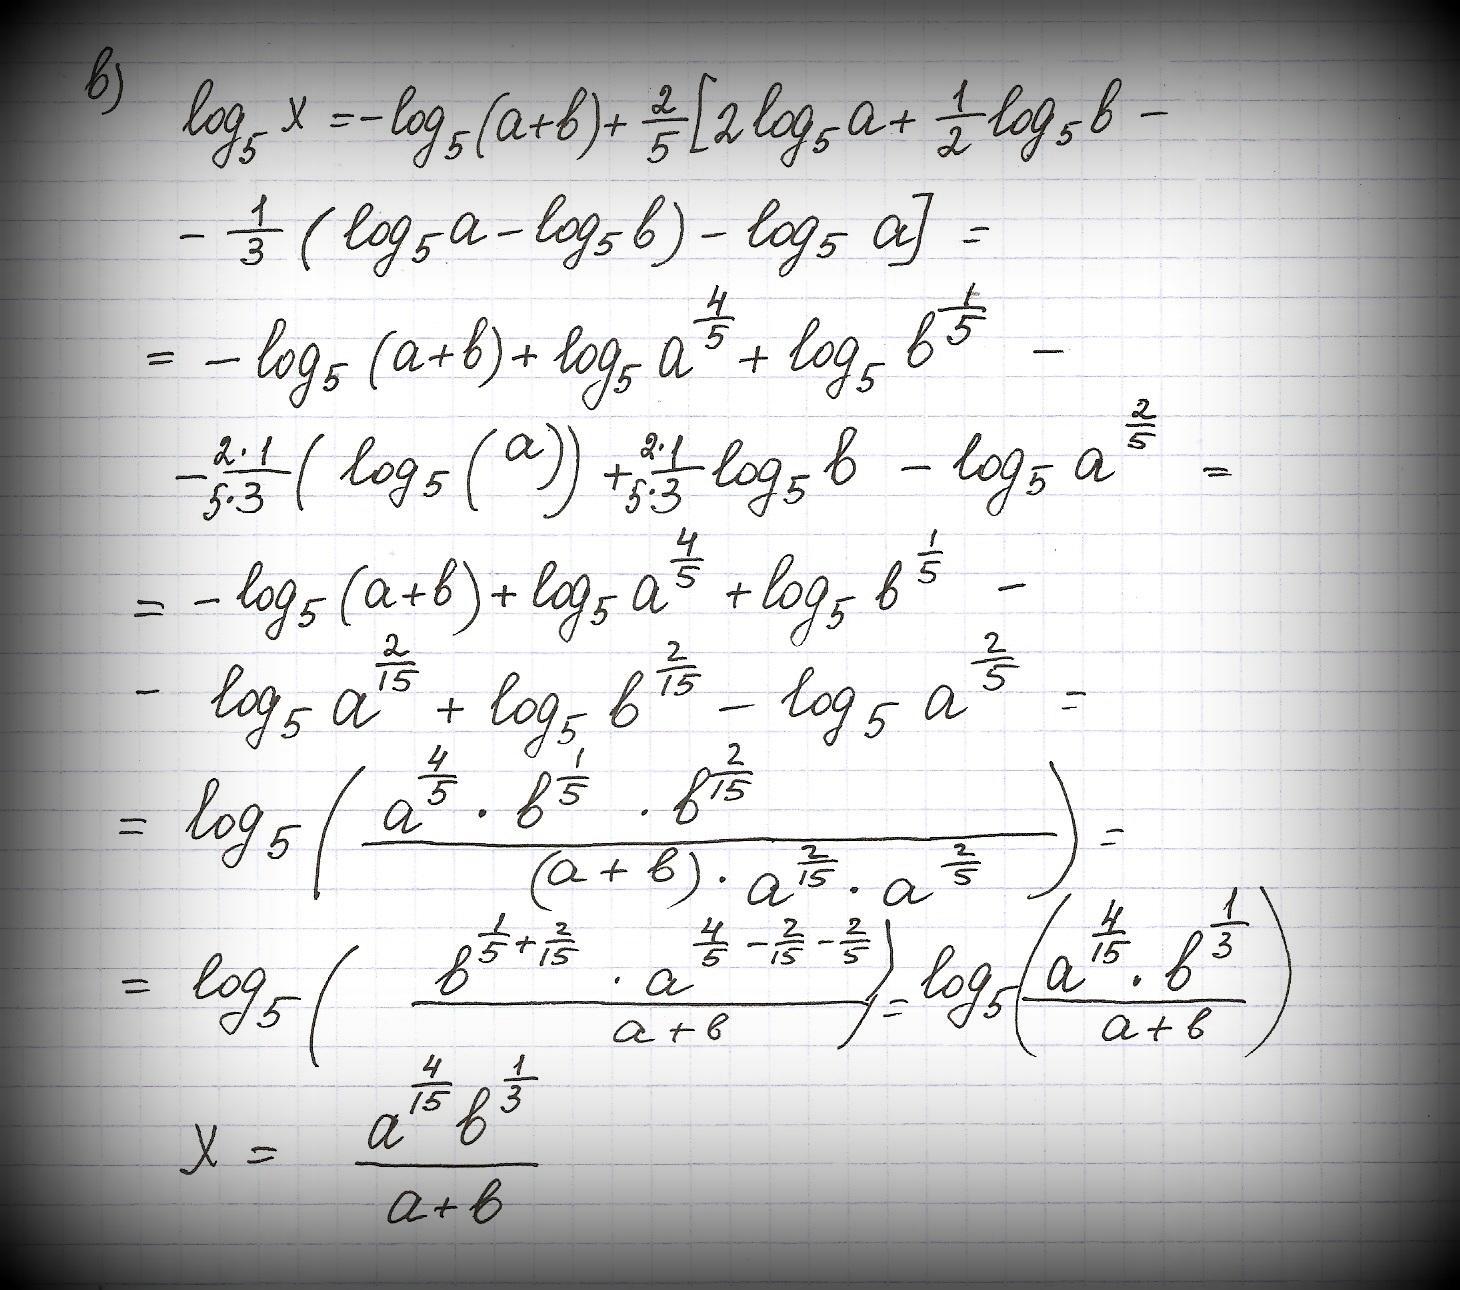 в)
log₅ x = - log₅ (a+b) + 2/5 [2 log₅ a + 1/2 log₅ b -
- 1/3 (log₅ a - log₅ b) - log₅ a] =
= - log₅ (a+b) + log₅ a^(4/5) + log₅ b^(1/5) -
- 2·1/5·3 (log₅ (a)) + 2·1/5·3 log₅ b - log₅ a^(2/5) =
= - log₅ (a+b) + log₅ a^(4/5) + log₅ b^(1/5) -
- log₅ a^(2/15) + log₅ b^(2/15) - log₅ a^(2/5) =
= log₅ (a^(4/5) · b^(1/5) · b^(2/15) / (a+b) · a^(2/15) · a^(2/5)) =
= log₅ (b^(1/5+2/15) · a^(4/5-2/15-2/5) / a+b) = log₅ (a^(4/15) · b^(1/3) / a+b)
x = a^(4/15) b^(1/3) / a+b